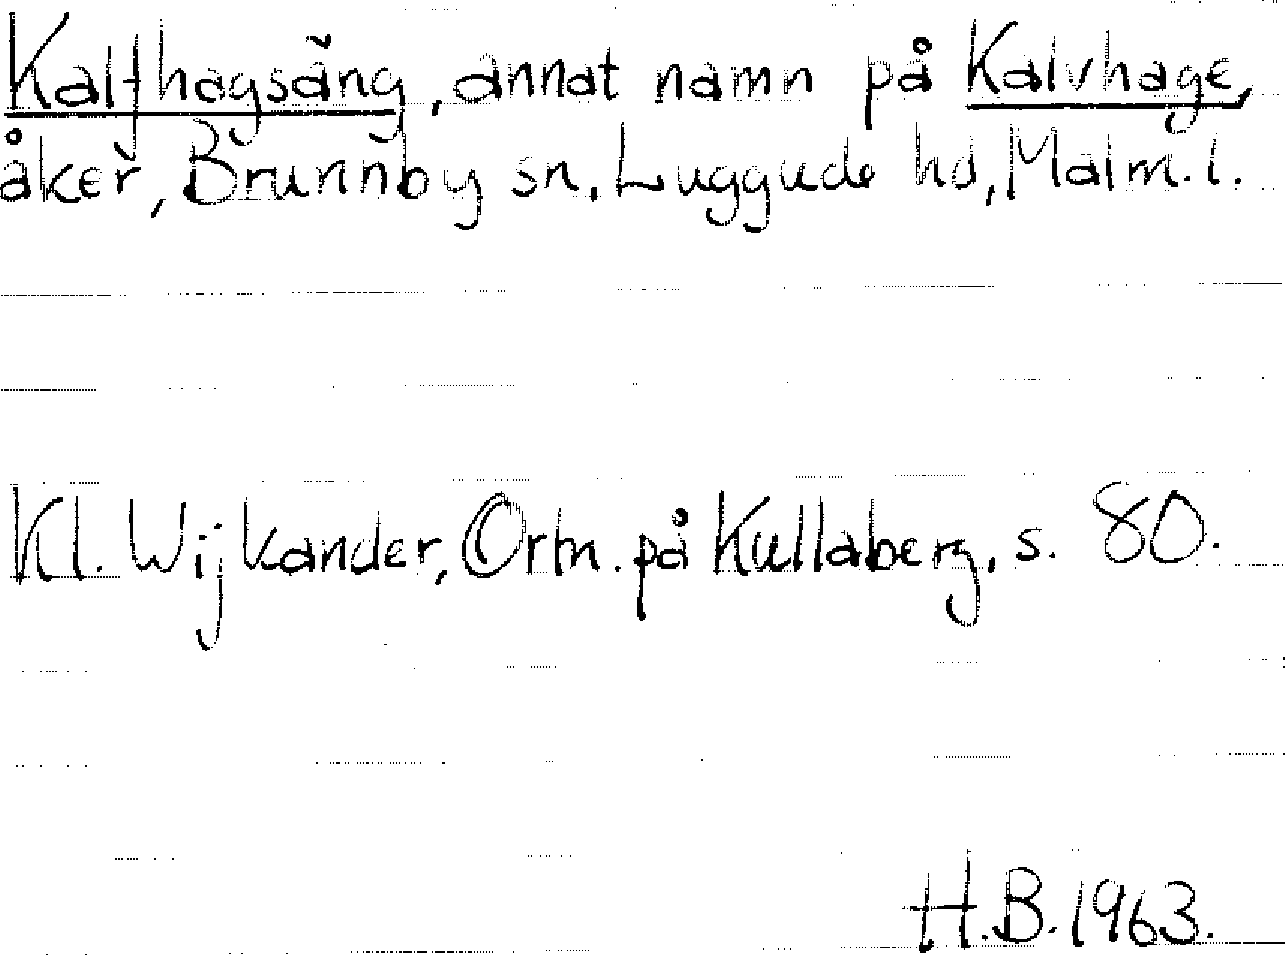 Kalfhagsäng, annat namn på Kalvhage,
åker, Brunnby sn, Luggude hd, Malm. l.
Kl. Wijkander, Ortn. på Kullaberg, s. 80.
H.B. 1963.